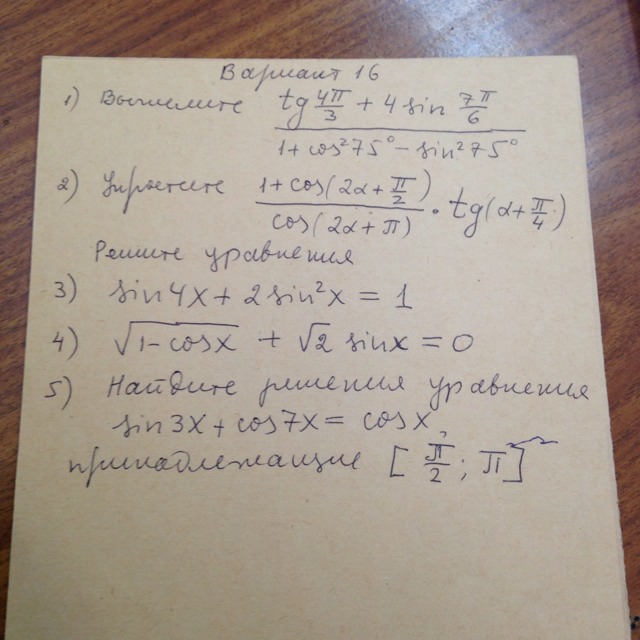 Вариант 16
1) Вычислите (tg 4π/3 + 4 sin 7π/6) / (1 + cos²75° − sin²75°)
2) Упростите (1 + cos(2α + π/2)) / cos(2α + π) · tg(α + π/4)
Решите уравнения
3) sin4x + 2sin²x = 1
4) √(1−cosx) + √2 sinx = 0
5) Найдите решения уравнения
sin3x + cos7x = cosx,
принадлежащие [π/2; π]